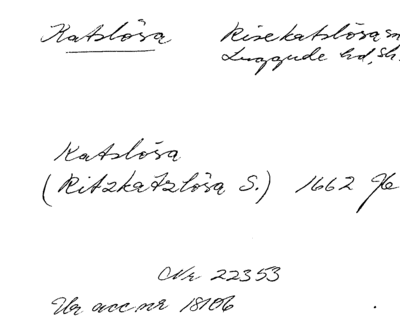 Katslösa Risekatslösa sn
Luggude hd, Sk.
Katslösa
(Ritzkatzlösa S.) 1662 Jb
Nr 22353
Ur acc nr 18106